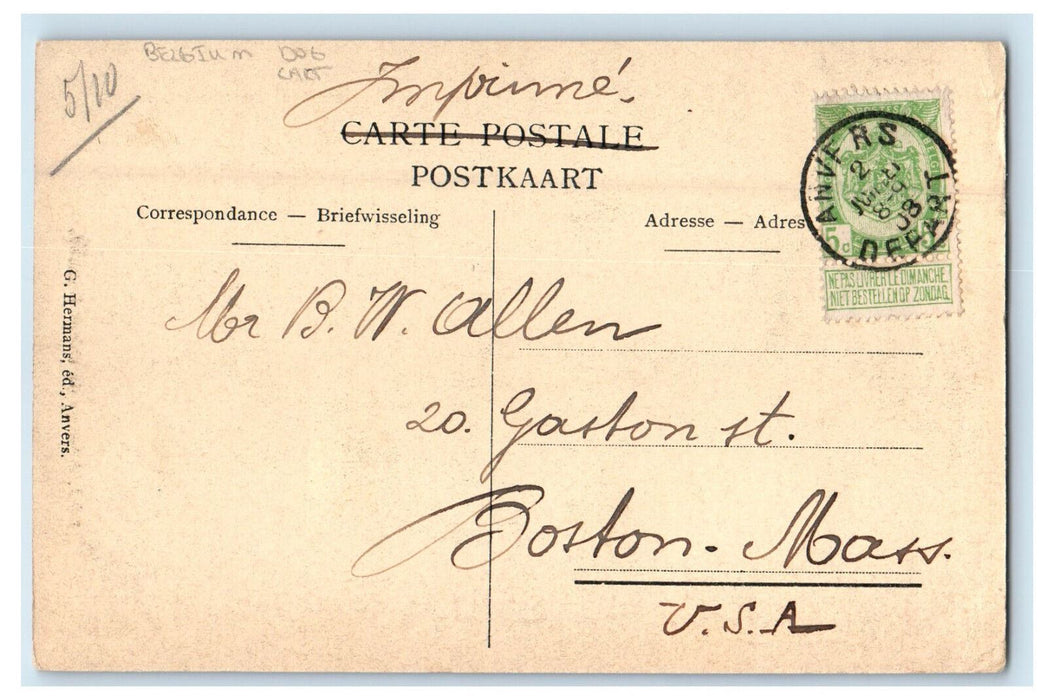 BELGIUM DOG
CART
5/10
Imprimé.
CARTE POSTALE
POSTKAART
Correspondance — Briefwisseling
Adresse — Adres
ANVERS
DEPART
08
5c
NE PAS LIVRER LE DIMANCHE
NIET BESTELLEN OP ZONDAG
G. Hermans, éd., Anvers.
Mr B. W. Allen
20. Gaston st.
Boston. Mass.
U.S.A